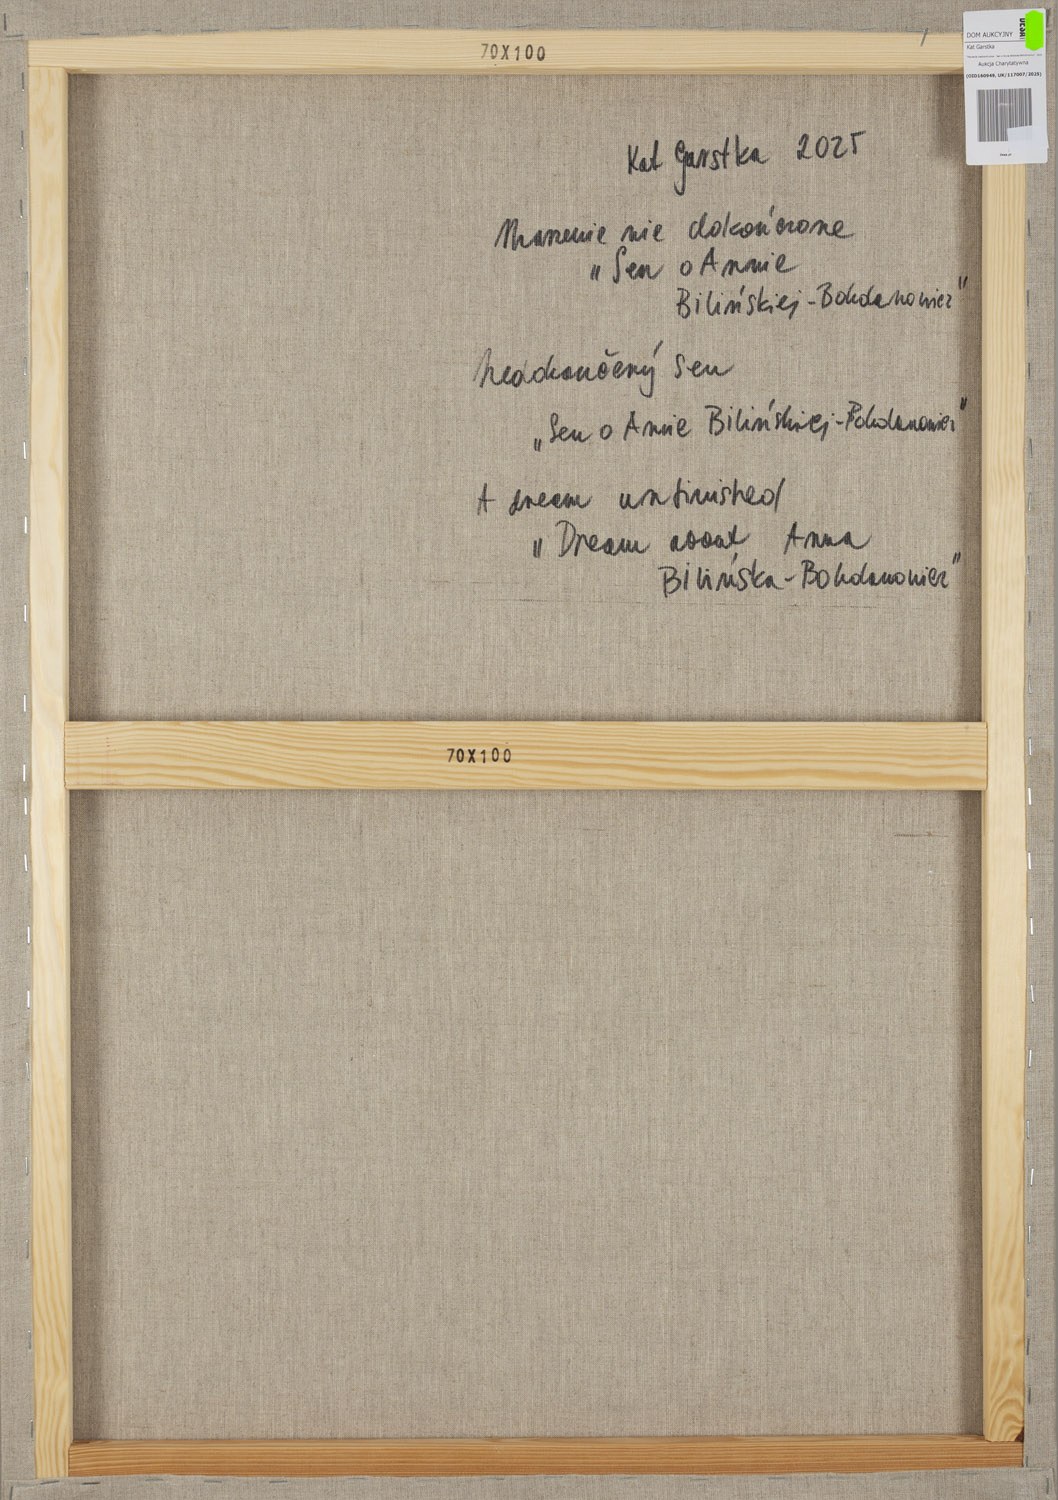 70X100
DOM AUKCYJNY
Kat Garstka
Aukcja Charytatywna
(OID160949, UK/117007/2025)
Kat Garstka 2025
Marzenie nie dokończone
"Sen o Annie
Bilińskiej-Bohdanowicz"
Nedokončený sen
„Sen o Annie Bilińskiej-Bohdanowicz"
A dream unfinished
"Dream about Anna
Bilińska-Bohdanowicz"
70X100